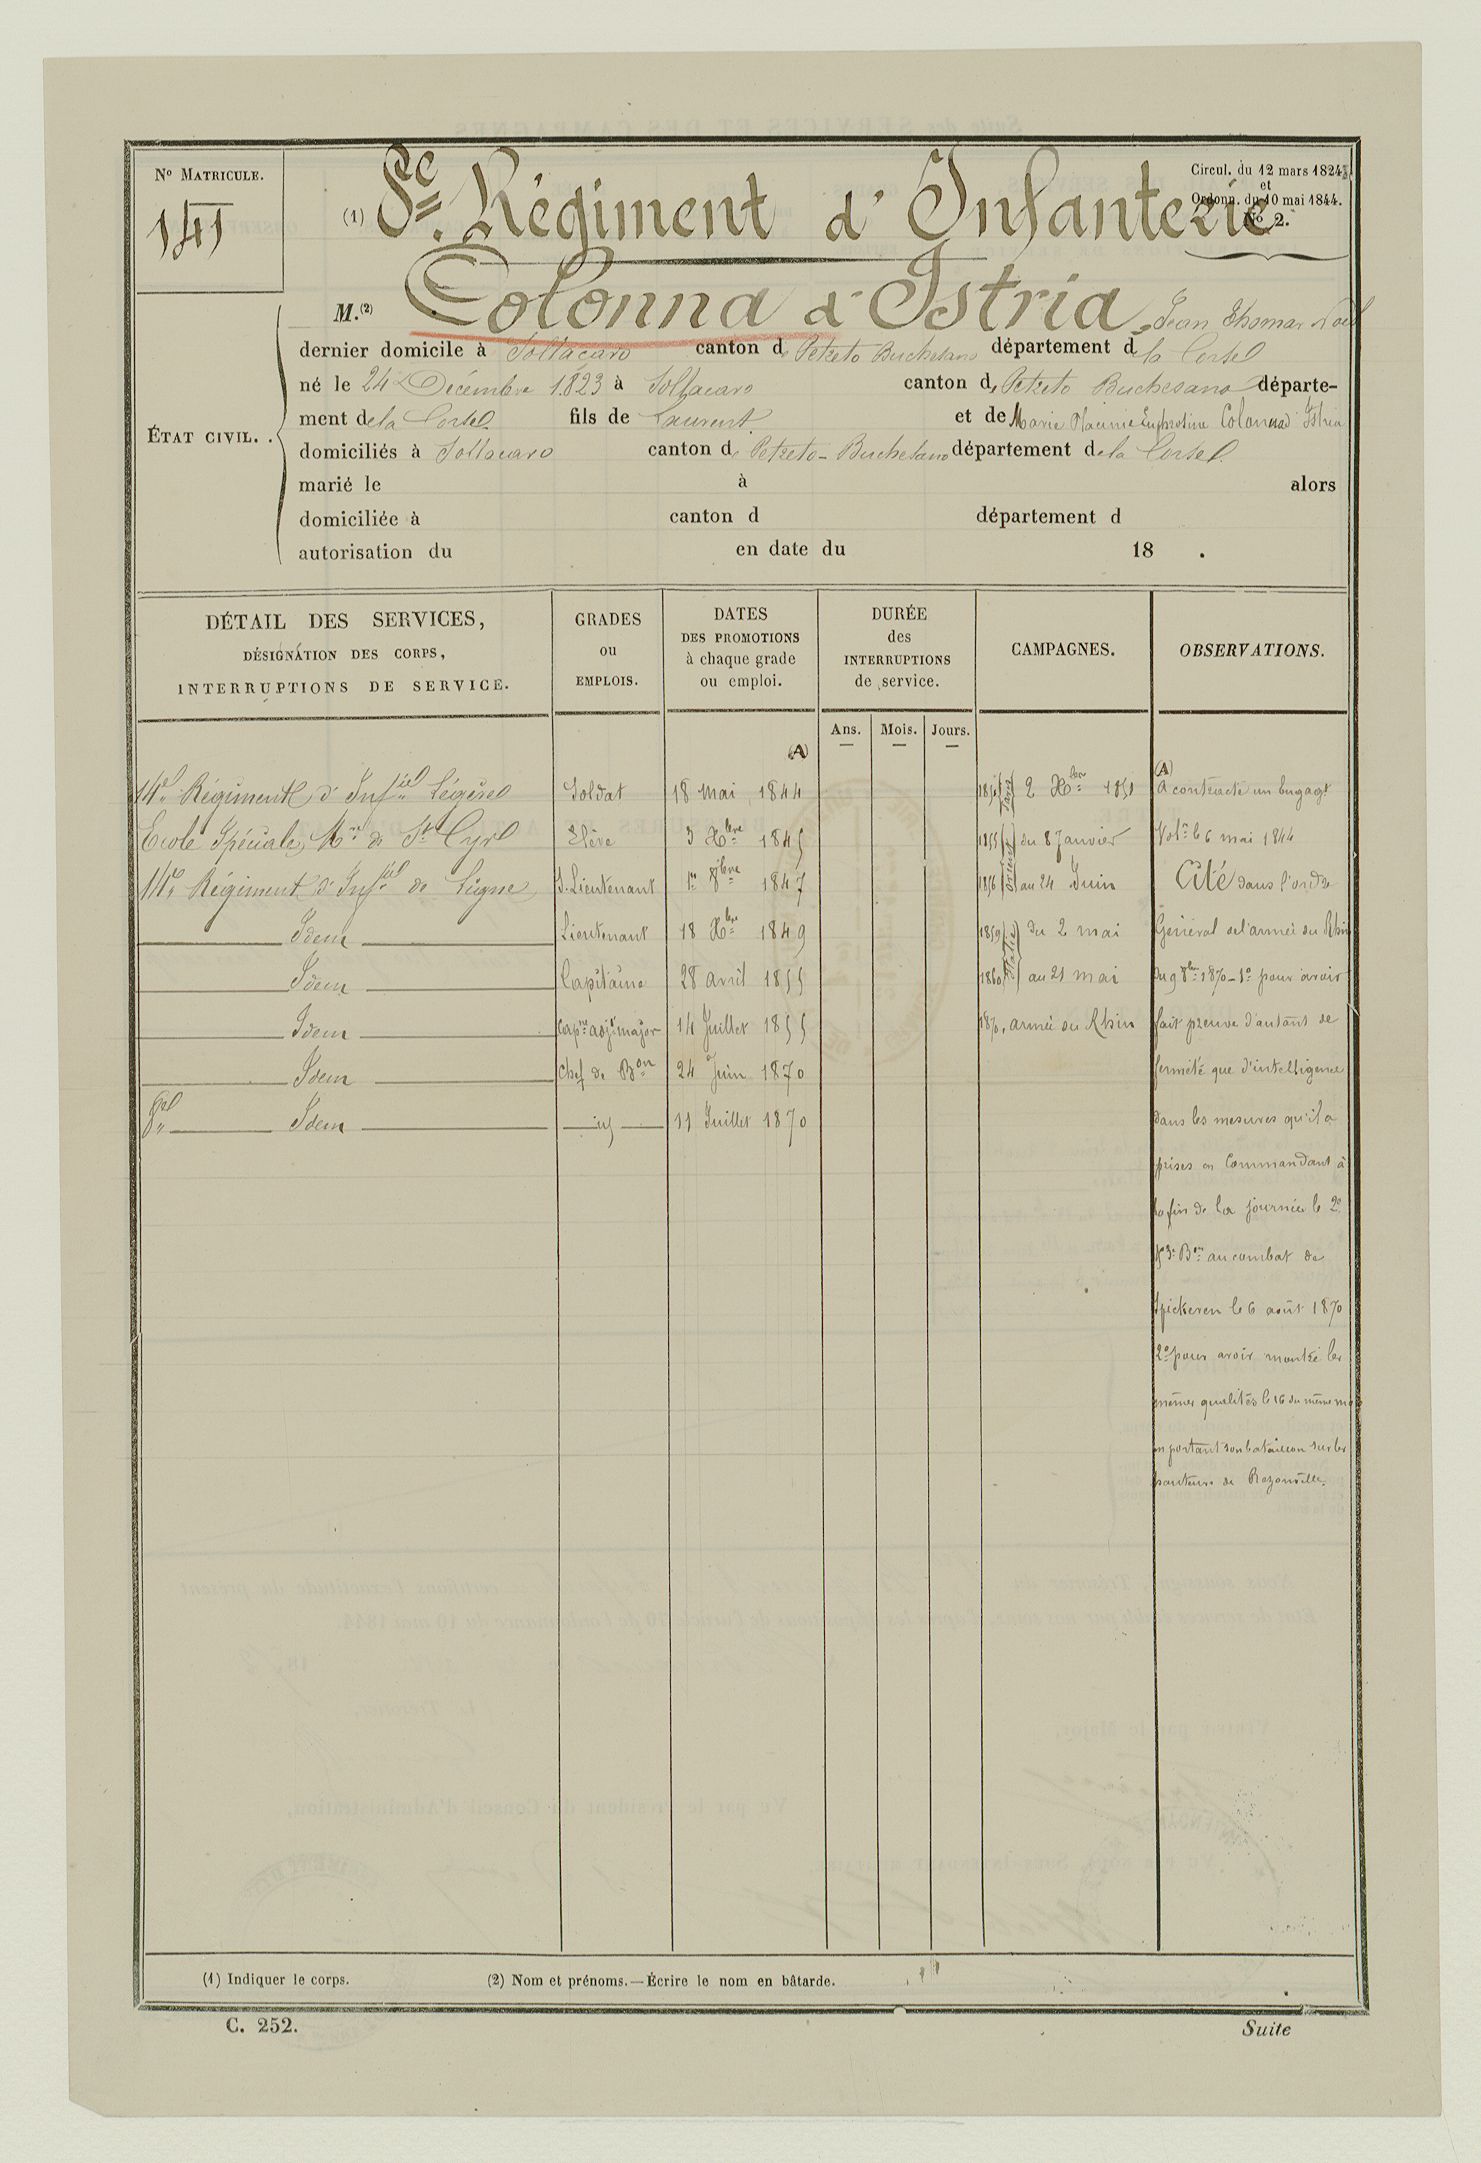 No MATRICULE.
141
Circul. du 12 mars 1824
et
Ordonn. du 10 mai 1844.
No 2.
(1) 8e Régiment d'Infanterie
M.(2) Colonna d'Istria, Jean Thomas Noël
ÉTAT CIVIL. .
dernier domicile à Sollacaro canton de Petreto Bicchisano département de la Corse
né le 24 Décembre 1823 à Sollacaro canton de Petreto Bicchisano départe-
ment de la Corse fils de Laurent et de Marie Euphrosine Colonna d'Istria
domiciliés à Sollacaro canton de Petreto-Bicchisano département de la Corse
marié le à alors
domiciliée à canton d département d
autorisation du en date du 18 .
DÉTAIL DES SERVICES,
DÉSIGNATION DES CORPS,
INTERRUPTIONS DE SERVICE.
GRADES
ou
EMPLOIS.
DATES
DES PROMOTIONS
à chaque grade
ou emploi.
DURÉE
des
INTERRUPTIONS
de service.
Ans. Mois. Jours.
CAMPAGNES.
OBSERVATIONS.
(A)
14e Régiment d'Infie Légère Soldat 18 mai 1844
Ecole Spéciale Mre de St Cyr Elève 3 Xbre 1845
14e Régiment d'Infie de Ligne S. Lieutenant 1er 8bre 1847
Idem Lieutenant 18 Xbre 1849
Idem Capitaine 28 avril 1855
Idem Capne adjt major 14 Juillet 1855
Idem Chef de Bon 24 Juin 1870
8e Idem id 11 Juillet 1870
1851 2 Xbre 1851
1855 Orient du 8 Janvier
1856 au 24 Juin
1859 Italie du 2 mai
1860 au 21 mai
1870, armée du Rhin
(A)
A contracté un engagt
Volre le 6 mai 1844
Cité dans l'ordre
Général de l'armée du Rhin
du 9 8bre 1870 - 1o pour avoir
fait preuve d'autant de
fermeté que d'intelligence
dans les mesures qu'il a
prises en commandant à
la fin de la journée le 2e
et 3e Bon au combat de
Spickeren le 6 août 1870
2o pour avoir montré les
mêmes qualités le 16 du même mois
en portant son bataillon sur les
hauteurs de Rezonville.
(1) Indiquer le corps. (2) Nom et prénoms.—Écrire le nom en bâtarde.
C. 252.
Suite